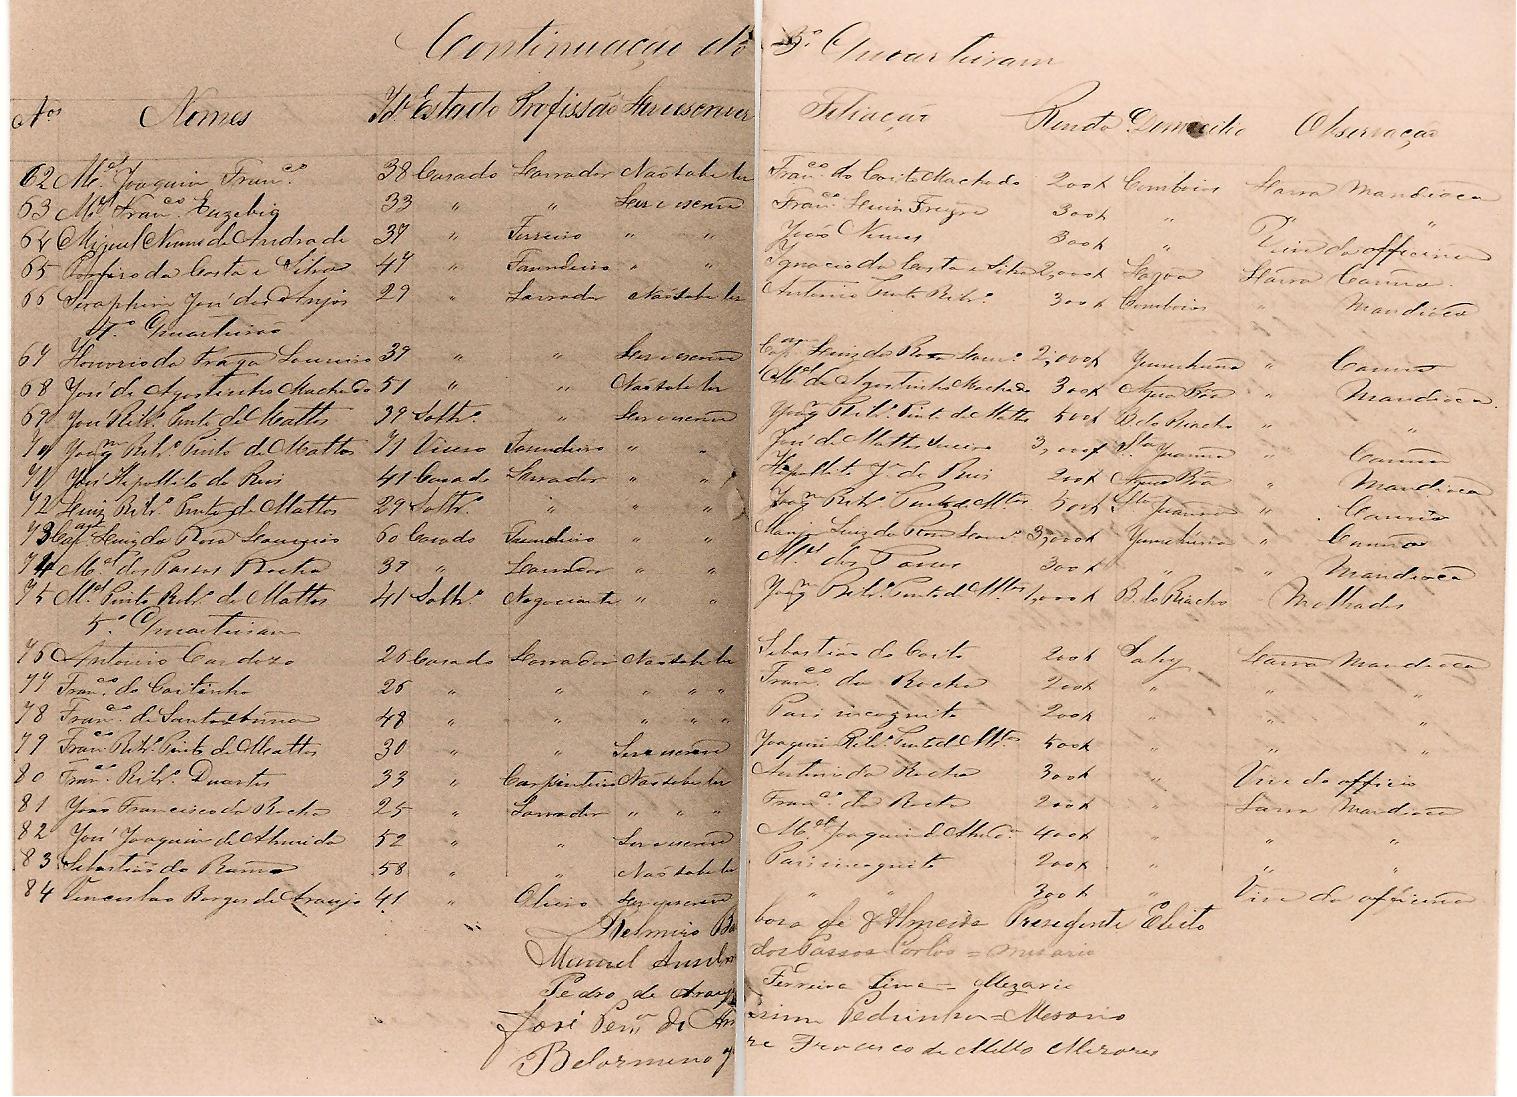 Continuação do 3.º Quarteiram
Nos Nomes Id.e Estado Profissão Ler e escrever Filiação Renda Domicilio Observação
62 M.el Joaquim Fran.co 38 Casado Lavrador Não sabe ler Fran.co do Couto Machado 200$ Comboios Lavra Mandioca
63 M.el Fran.co Euzebio 33 " " Ler e escreve Fran.co Luiz Freyre 300$ " " "
64 Miguel Nunes de Andrade 37 " Ferreiro " " João Nunes 300$ " Vive da officina
65 Porfiro da Costa e Silva 47 " Fasendeiro " " Ignacio da Costa e Silva 2,000$ Lagoa Lavra Canna
66 Seraphim José dos Anjos 29 " Lavrador Não sabe ler Antonio Pinto Ribr.o 300$ Comboios " Mandioca
4.º Quarteirão
67 Honorio da Fraga Loureiro 39 " " Ler e escreve Cap.am Luiz da Rosa Lour.o 2,000$ " Canna
68 José de Agostinho Machado 51 " " Não sabe ler M.el de Agostinho Machado 300$ Agua Bôa " Mandioca
69 José Ribr.o Pinto de Mattos 32 Soltr.o " Ler e escreve Joaq.m Ribr.o Pinto de Mattos 500$ B. do Riacho " "
70 Joaq.m Ribr.o Pinto de Mattos 71 Viuvo Fasendeiro " " José de Mattos 3,000$ S.ta Joanna " Canna
71 José Hipollito de Reis 41 Casado Lavrador " " Hipollito J. de Reis 200$ Agua Bôa " Mandioca
72 Luiz Ribr.o Pinto de Mattos 29 Soltr.o " " " Joaq.m Ribr.o Pinto de M.tos 500$ S.ta Joanna " Canna
73 Cap.am Luiz da Rosa Loureiro 60 Casado Fasendeiro " " Luiz da Rosa Lour.o 3,000$ " Canna
74 M.el dos Passos Rocha 39 " Lavrador " " M.el dos Passos 300$ " " Mandioca
75 M.el Pinto Ribr.o de Mattos 41 Soltr.o Negociante " " Joaq.m Ribr.o Pinto de M.tos 1,000$ B. do Riacho Molhados
5.º Quarteiram
76 Antonio Cardozo 26 Casado Lavrador Não sabe ler Sebastião do Couto 200$ Sahy Lavra Mandioca
77 Fran.co do Coutinho 26 " " " " Fran.co da Rocha 200$ " " "
78 Fran.co de Santa Anna 48 " " " " " Pais incognito 200$ " " "
79 Fran.co Ribr.o Pinto de Mattos 30 " " Ler e escreve Joaquim Ribr.o Pinto de M.tos 500$ " " "
80 Fran.co Ribr.o Duarte 33 " Carpinteiro Não sabe ler Antonio da Rocha 300$ " Vive do officio
81 João Francisco da Rocha 25 " Lavrador " " " Fran.co da Rocha 200$ " Lavra Mandioca
82 José Joaquim de Almeida 52 " " Ler e escreve M.el Joaquim d'Almd.a 400$ " " "
83 Sebastião do 58 " " Não sabe ler Pais incognito 200$ " " "
84 Venceslao Borges de Araujo 41 " Oleiro Ler e escreve " " 300$ " Vive da officina
Belmiro Barbosa de Almeida Presidente Eleito
Manuel Anselmo dos Passos Corlos = mesario
Pedro de Araujo Ferreira Lima = Mezario
José Per.a de Pedrinha = Mesario
Belarmino Francisco de Mello Mezario